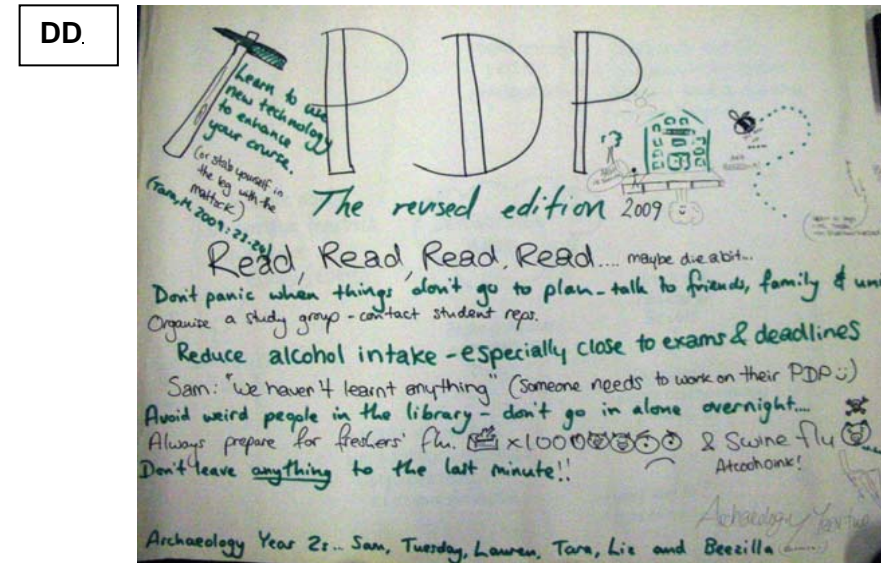 DD.
PDP
Learn to use
new technology
to enhance
your course.
(or stab yourself in
the leg with the
mattock)
(Tara, M. 2009: 23-24)
The revised edition 2009
Read, Read, Read, Read.... maybe die a bit...
Don't panic when things don't go to plan - talk to friends, family & uni
Organise a study group - contact student reps.
Reduce alcohol intake - especially close to exams & deadlines
Sam: "We haven't learnt anything" (Someone needs to work on their PDP :))
Avoid weird people in the library - don't go in alone overnight....
Always prepare for freshers' flu. x1000 & Swine flu
Atcoohoink!
Don't leave anything to the last minute!!
Archaeology Year two
Archaeology Year 2s... Sam, Tuesday, Lauren, Tara, Liz and Beezilla